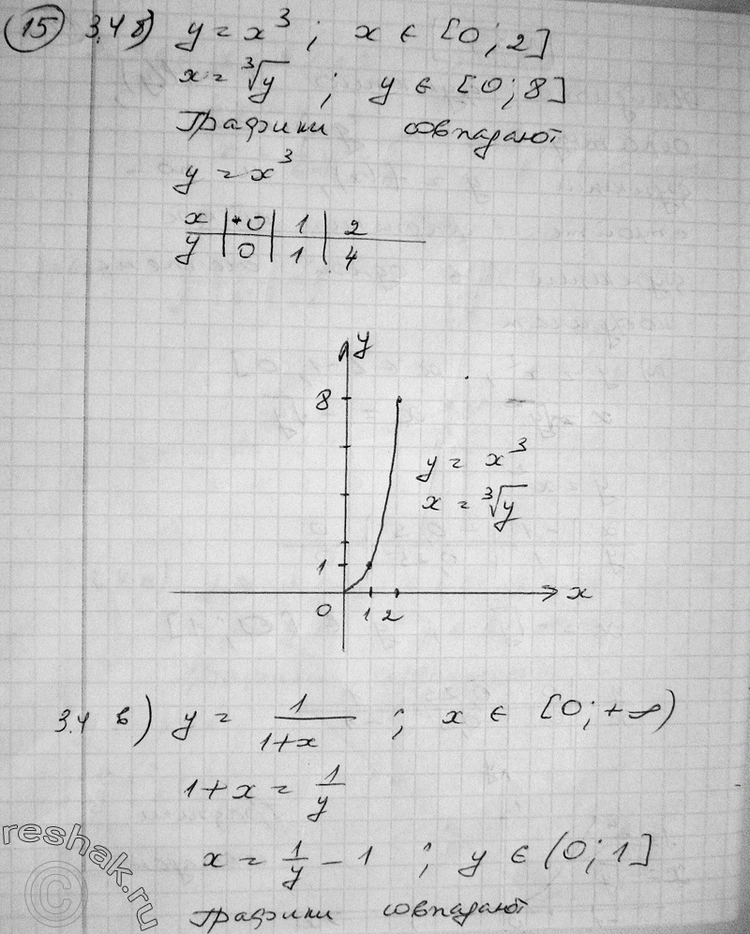 15 3.4 б) y = x³ ; x ∈ [0; 2]
x = ∛y ; y ∈ [0; 8]
Графики совпадают
y = x³
x | 0 | 1 | 2
y | 0 | 1 | 4
y
8
y = x³
x = ∛y
1
0 1 2 x
3.4 в) y = 1/(1+x) ; x ∈ [0; +∞)
1+x = 1/y
x = 1/y - 1 ; y ∈ (0; 1]
Графики совпадают
reshak.ru
©